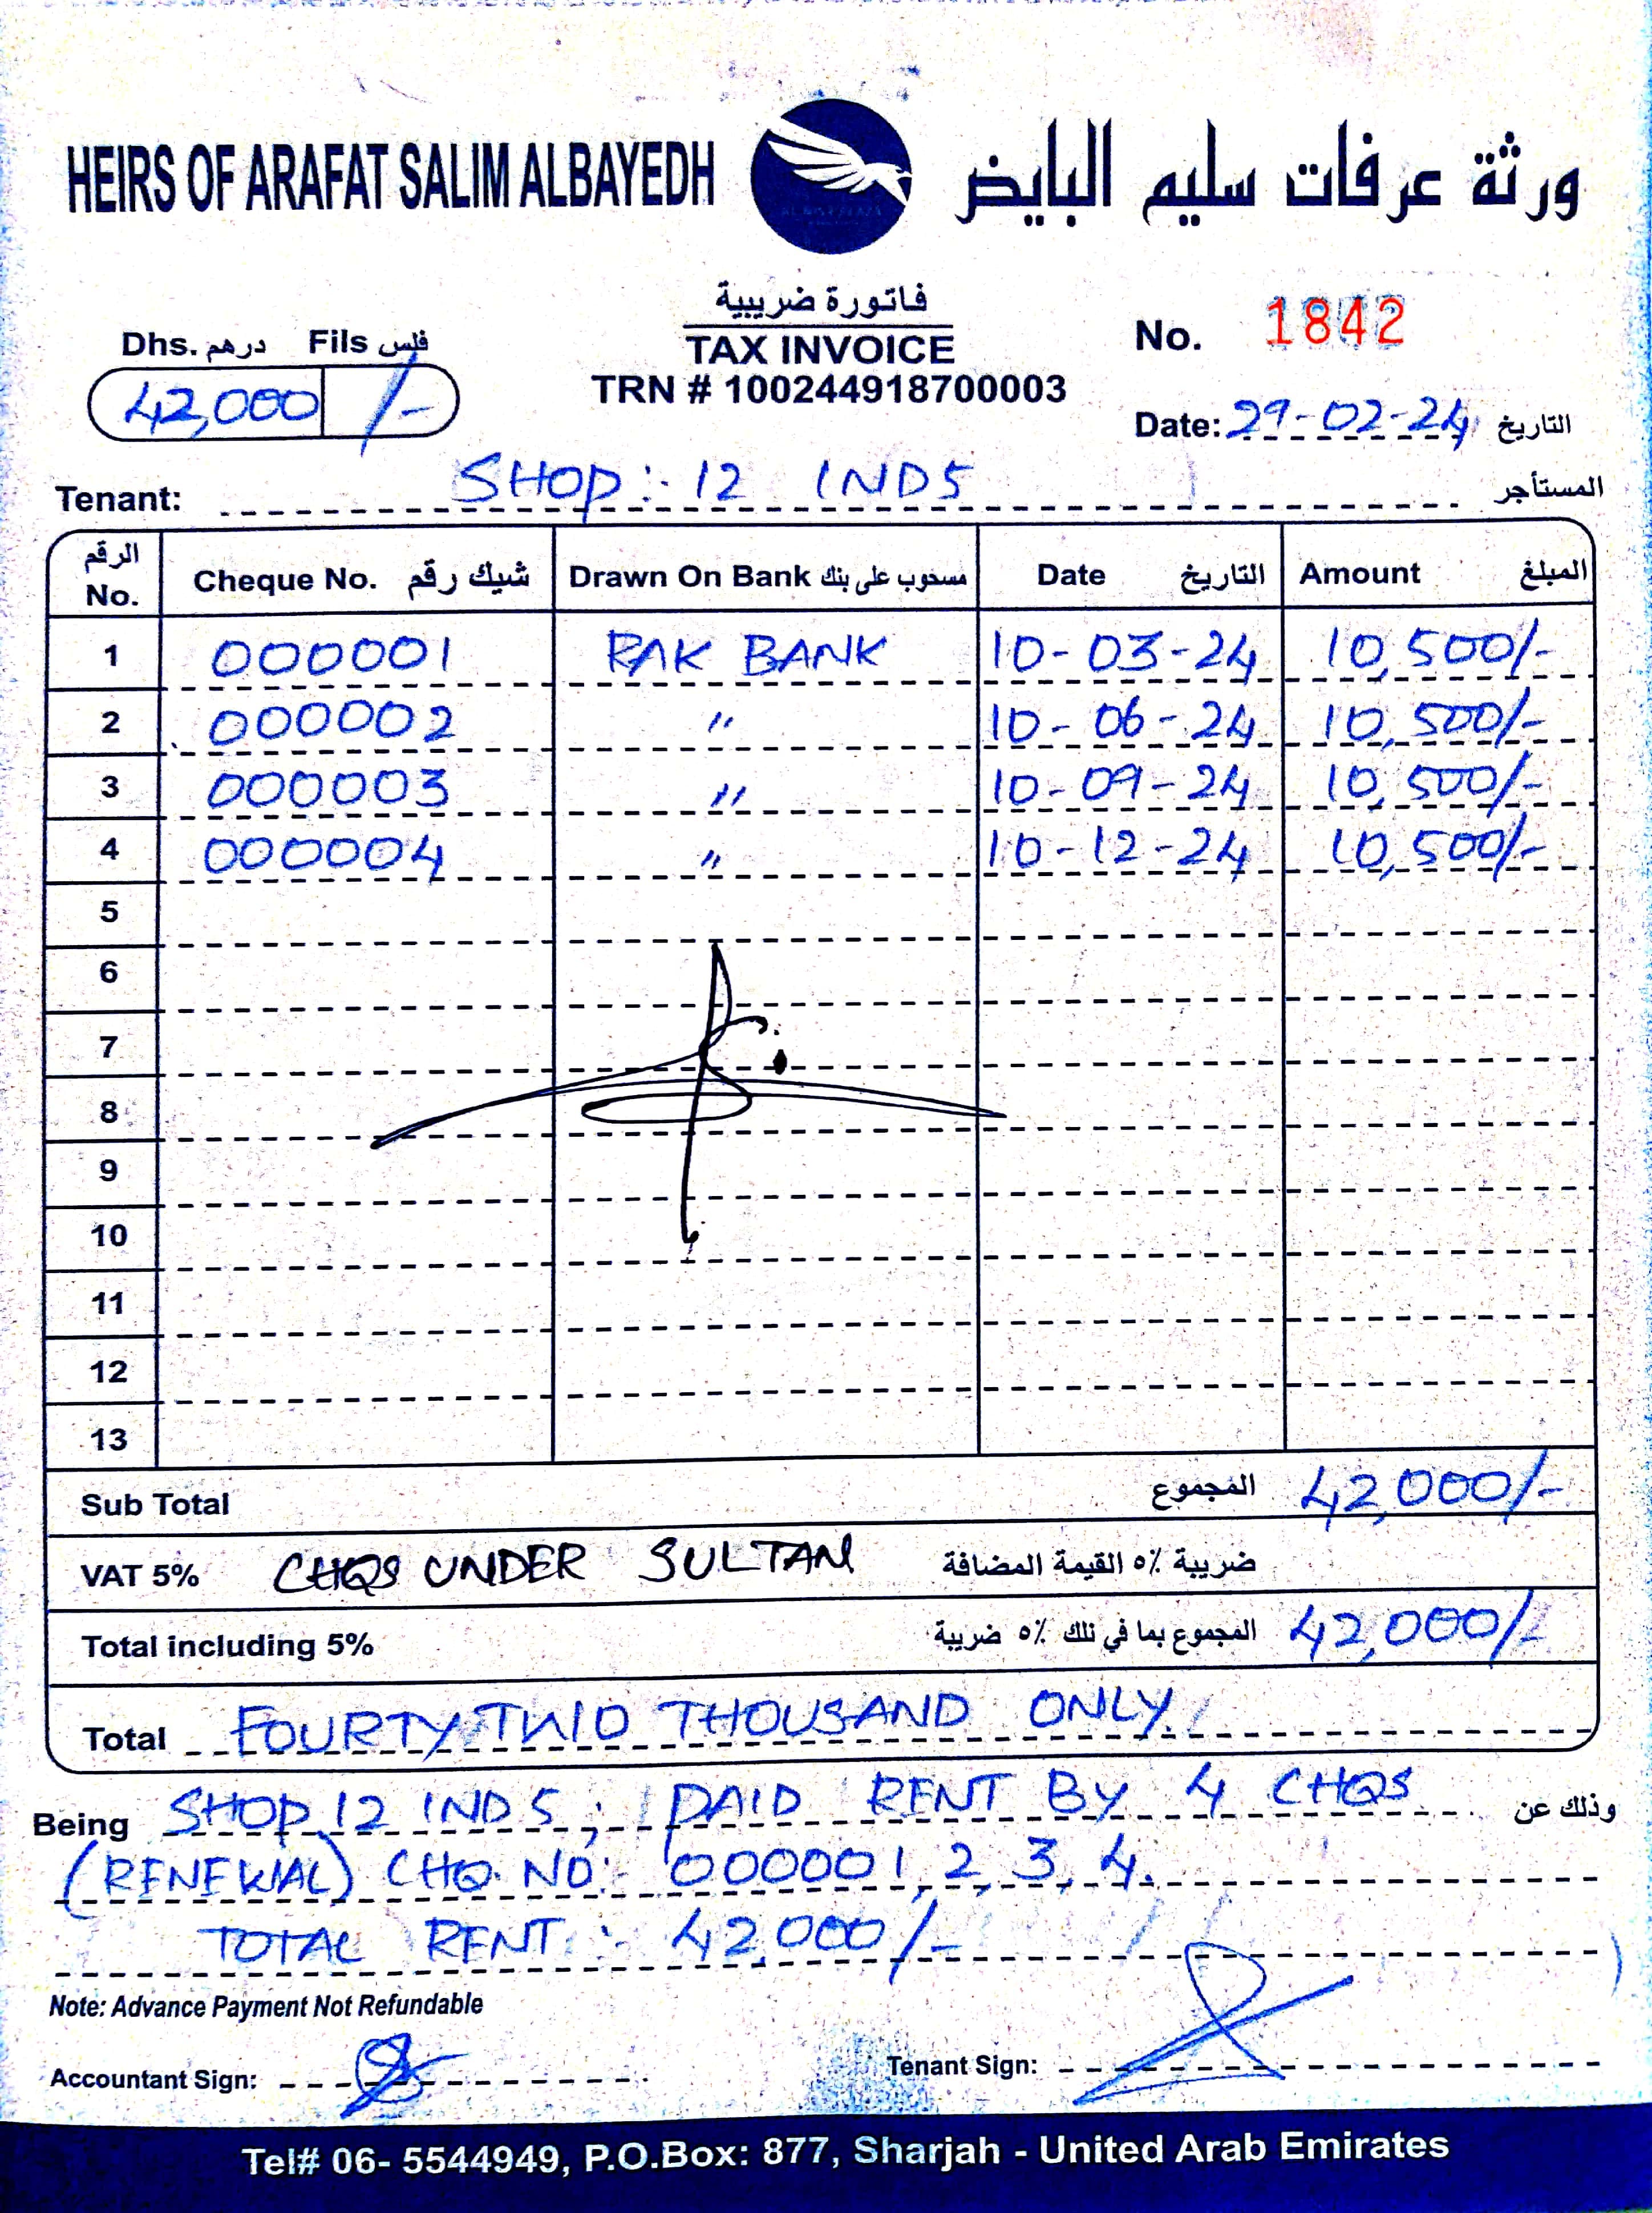 HEIRS OF ARAFAT SALIM ALBAYEDH
ورثة عرفات سليم البايض
فاتورة ضريبية
TAX INVOICE
TRN # 100244918700003
No. 1842
Dhs. درهم Fils فلس
42,000 /-
Date: 29-02-24 التاريخ
Tenant: SHOP:- 12 IND5 المستأجر
الرقم No. Cheque No. شيك رقم Drawn On Bank مسحوب على بنك Date التاريخ Amount المبلغ
1 000001 RAK BANK 10-03-24 10,500/-
2 000002 " 10-06-24 10,500/-
3 000003 " 10-09-24 10,500/-
4 000004 " 10-12-24 10,500/-
5
6
7
8
9
10
11
12
13
Sub Total المجموع 42,000/-
VAT 5% CHQS UNDER SULTAN ضريبة ٥٪ القيمة المضافة
Total including 5% المجموع بما في ذلك ٥٪ ضريبة 42,000/-
Total FOURTY TWO THOUSAND ONLY.
Being SHOP 12 IND 5; PAID RENT BY 4 CHQS وذلك عن
(RENEWAL) CHQ. NO:- 000001, 2, 3, 4.
TOTAL RENT:- 42,000/-
Note: Advance Payment Not Refundable
Accountant Sign: Tenant Sign:
Tel# 06- 5544949, P.O.Box: 877, Sharjah - United Arab Emirates